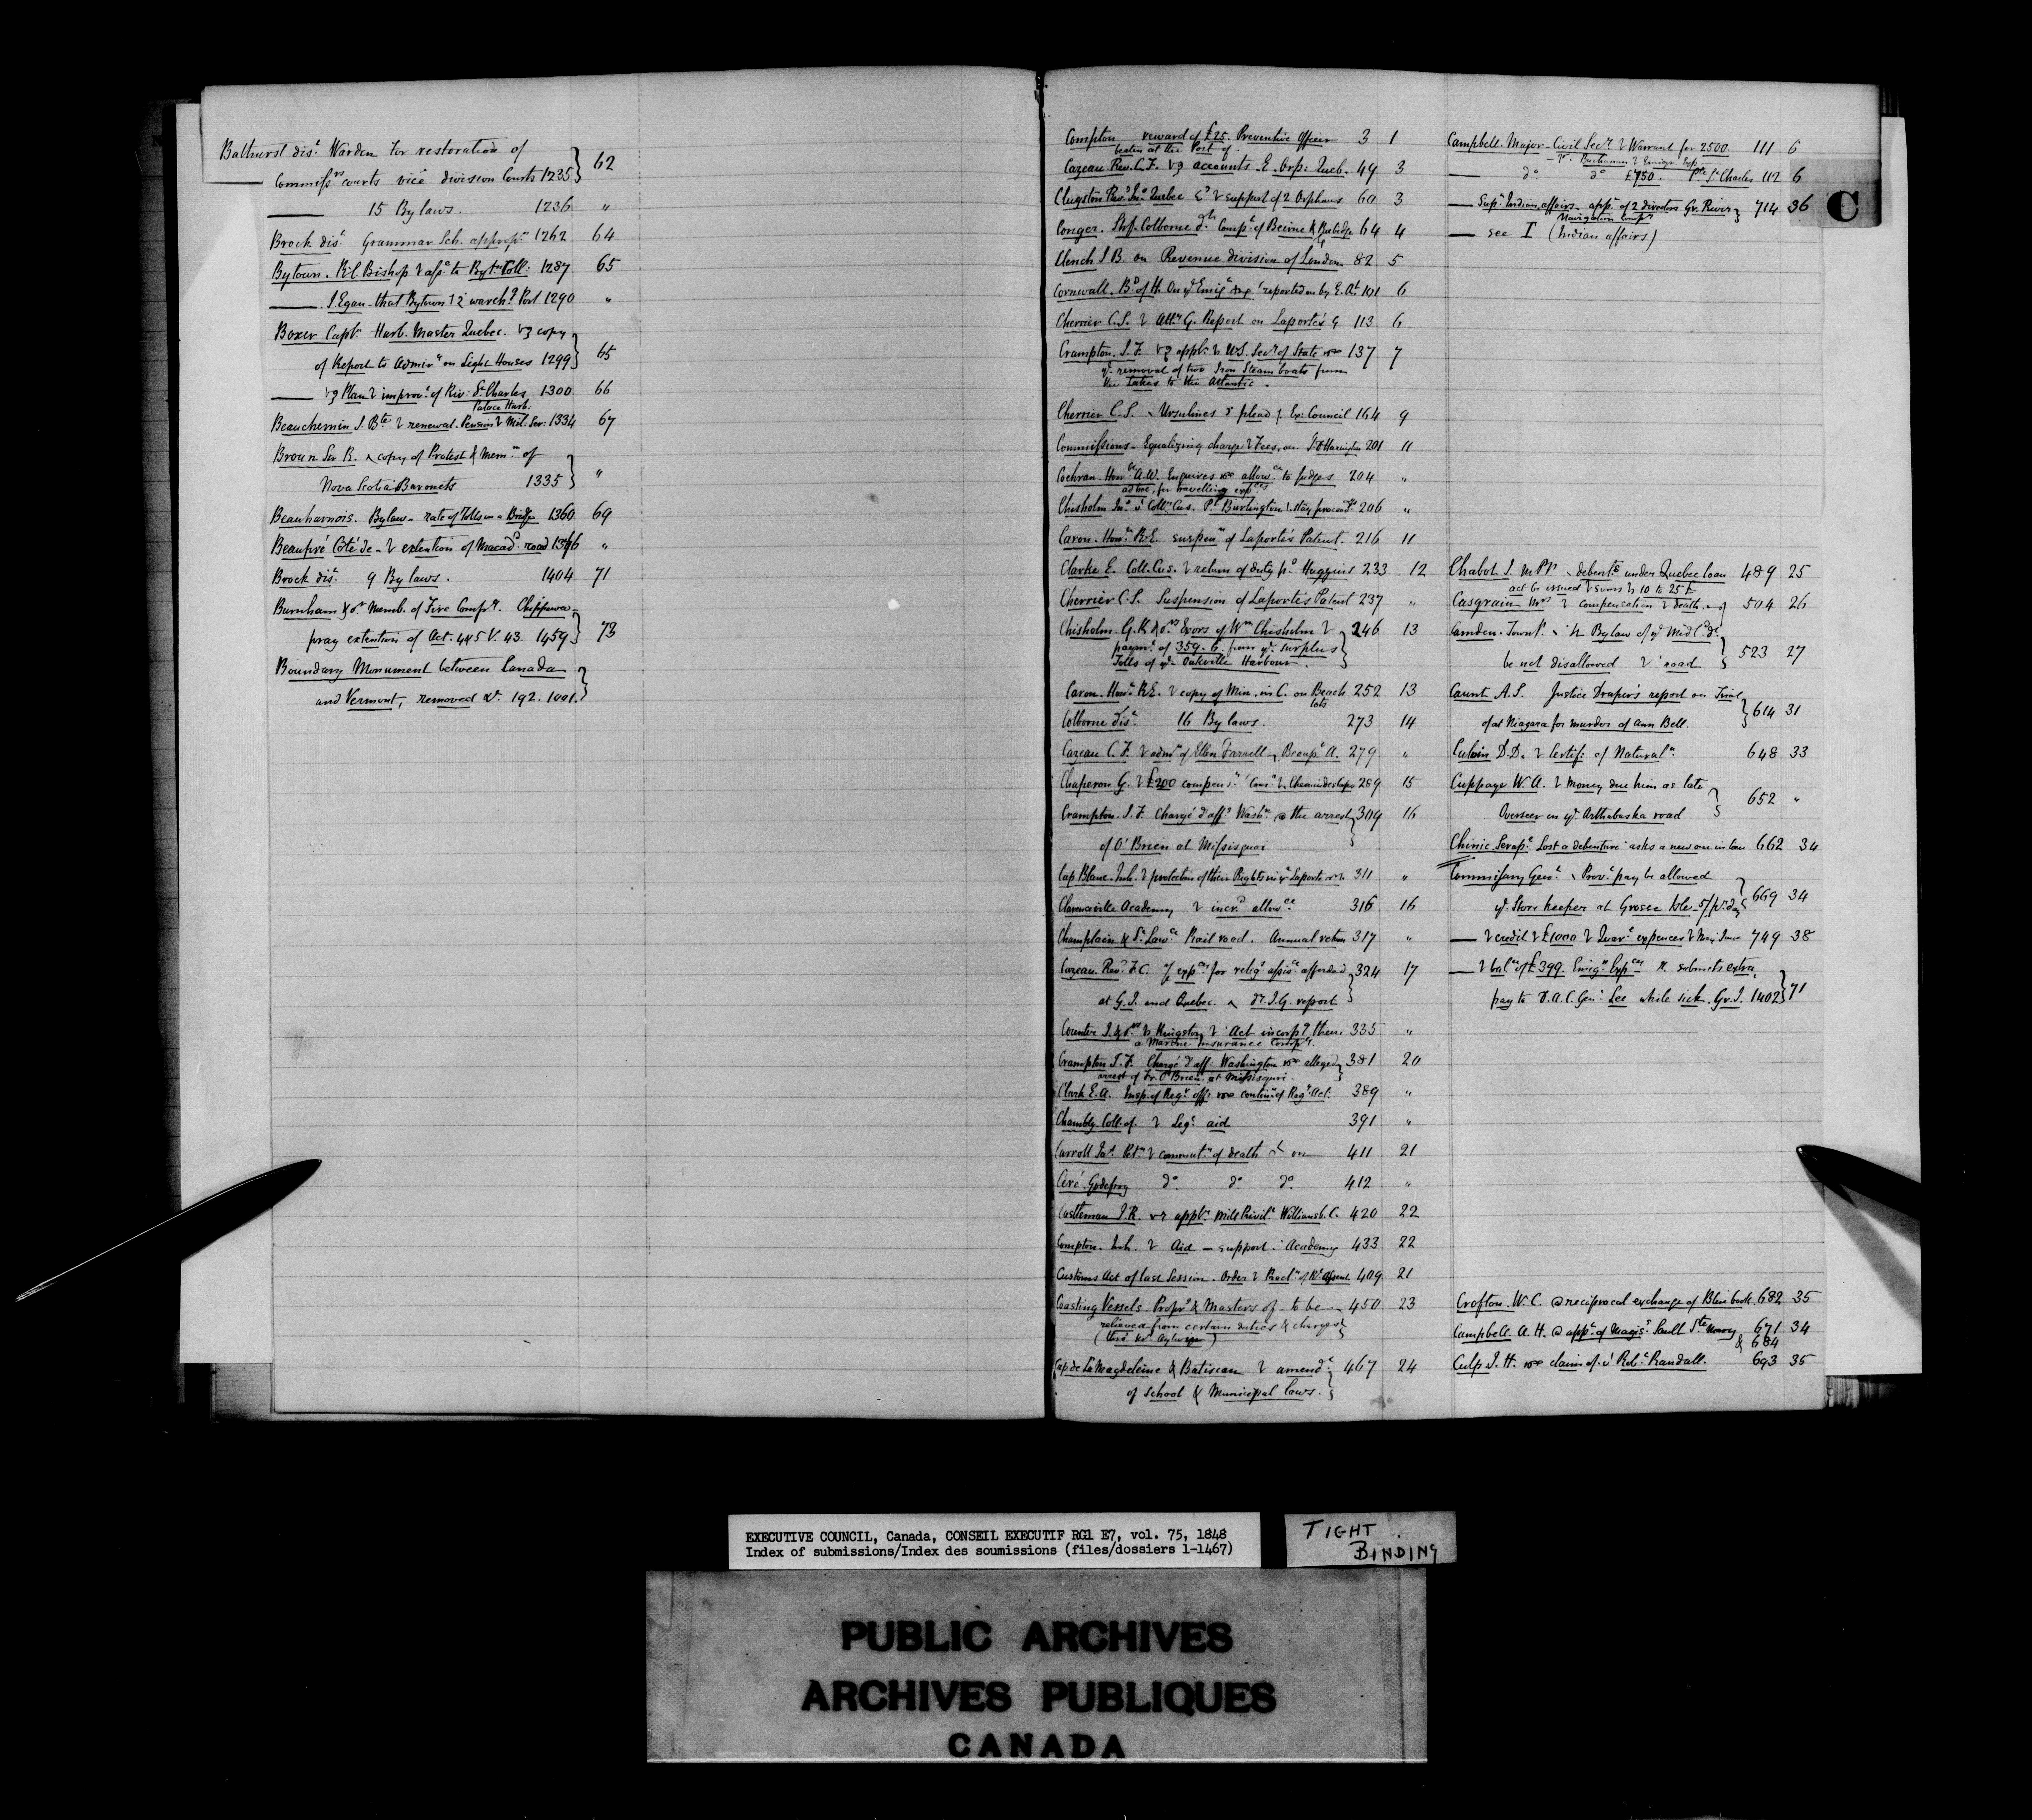 Bathurst dist. Warden for restoration of
Commissrs courts vice division Courts 1235 } 62
—— 15 By laws. 1236 "
Brock dist. Grammar Sch. appropn 1262 64
Bytown. R.C. Bishop & asse to Bytn Coll: 1287 65
—— J. Egan - that Bytown warehg Port 1290 "
Boxer Capt. Harb. Master Quebec. copy
of Report to Admir on Light Houses 1299 } 65
—— Plan improvt of Riv: St Charles 1300 66
Palace Harb:
Beauchemin J. Bte renewal. Pension Mil: Ser: 1334 67
Broun Sir R. copy of Protest & Mem: of
Nova Scotia Baronets 1335 } "
Beauharnois. Bylaw - rate of Tolls on a Bridge 1360 69
Beaupré Coté de - extention of Macadd road "
Brock dist. 9 By laws. 1404 71
Burnham & ors Memb. of Fire Compy. Chippawa -
pray extention of Act. 4 & 5 V. 43. 1459 } 73
Boundary Monument between Canada
and Vermont, removed 192. 1001. }
Compton reward of £25. Preventive Officer 3 1
beaten at the Port of.
Cazeau Rev. C.F. accounts. E. Orp: Queb. 49 3
Clugston Rev. Jno Quebec support of 2 Orphans 60 3
Conger. Shff. Colborne dt Compt of Beirne & Rubidge 64 4
Clench J B. on Revenue division of London 82 5
Cornwall. Bd of H. reported on by E. 101 6
Cherrier C.S. Atty G. Report on Laporte's 113 6
Crampton. J. F. appln U.S. Secy of State 137 7
removal of two Iron Steam boats from
the Lakes to the Atlantic.
Cherrier C.S. Ursulines plead Ex: Council 164 9
Commissions - Equalizing charge Fees, on 201 11
Cochran Honble A.W. Enquires allowce to Judges 204 "
ad hoc, for travelling expces
Chisholm Jno Collr Cus. Pt Burlington stay 206 "
Caron - Honble R.E. suspenn of Laporte's Patent. 216 11
Clarke E. Coll. Cus. return of duty pd Huggins 233 12
Cherrier C.S. Suspension of Laporte's Patent 237 "
Chisholm - G.K & ors Exors of Wm Chisholm 246 13
paymt of 359. 6. from ye surplus
Tolls of ye Oakville Harbour. }
Caron - Honble R.E. copy of Min. in C. on Beach 252 13
lots
Colborne dist. 16 By laws. 273 14
Cazeau C. F. admn of Ellen Farrell, Beaupt A. 279 "
Chaperon G. £200 compensn Chemin des Caps 289 15
Crampton. J. F. Chargé d'affs Washn @ the arrest 309 16
of O'Brien at Missisquoi }
Cap Blanc. Inh. protection of their Rights Laporte 311 "
Clarenceville Academy incrd allowce 316 16
Champlain & St Lawce Rail road. Annual return 317 "
Cazeau Revd F.C. expces for religs assisce afforded 324 17
at G.I. and Quebec. I.G. report }
Counter J. & ors Kingston Act incorpg them 335 "
a Marine Insurance Compy.
Crampton J.F. Chargé d'aff: Washington alleged 381 20
arrest of Fr. O'Brien at Missisquoi. }
Clark E.A. Insp. of Regy offs continn of Regy Act: 389 "
Chambly Coll: of. Legs aid 391 "
Carroll Jas Petn commutn of death on 411 21
Ciré - Godefroy do do do 412 "
Castleman J.R. appln Mill Privile Williamsb. C. 420 22
Compton. Inh. Aid - support Academy 433 22
Customs Act of last Session. Order Procln of Rl Assent 409. 21
Coasting Vessels Propre & Masters of - to be 450 23
relieved from certain duties & charges }
Cap de la Magdeleine & Batiscan amendt 467 24
of school & Municipal laws. }
Campbell. Major - Civil Secy Warrant for 2500. 111 6
Buchanan Emigrn Exp
—— do do £750. Pte St Charles 112 6
—— Supt Indian affairs - appt of 2 directors Gr. River } 714 36
Navigation Compy
—— see I (Indian affairs)
C
Chabot J. M.P.P. debentrs under Quebec loan 489 25
act be issued sums 10 to 25 £
Casgrain Mrs compensation death 504 26
Camden. Townp. Bylaw of ye Midld dt
be not disallowed road } 523 27
Caunt A.S. Justice Draper's report on Trial
of at Niagara for murder of Ann Bell. } 614 31
Culvin D.D. Certifi: of Naturaln 648 33
Cuppage W. A. Money due him as late
Overseer on ye Arthabaska road } 652 "
Chinic Serapn Lost a debenture asks a new one in lieu 662 34
Commissary Genl. Provl pay be allowed
ye Store keeper at Grosse Isle 5/ pr day } 669 34
—— credit £1000 Quare expences May June 749 38
—— balce of £399. Emign Expces submits extra
pay to D.A.C. Genl Lee while sick. Gr. I. 1402 } 71
Crofton. W. C. @ reciprocal exchange of Blue book. 682 35
Campbell. A. H. @ appt of Magis: Sault Ste Mary 671 34
& 684
Culp J. H. claim of Robt Randall. 693 35
EXECUTIVE COUNCIL, Canada, CONSEIL EXECUTIF RG1 E7, vol. 75, 1848
Index of submissions/Index des soumissions (files/dossiers 1-1467)
TIGHT
BINDING
PUBLIC ARCHIVES
ARCHIVES PUBLIQUES
CANADA